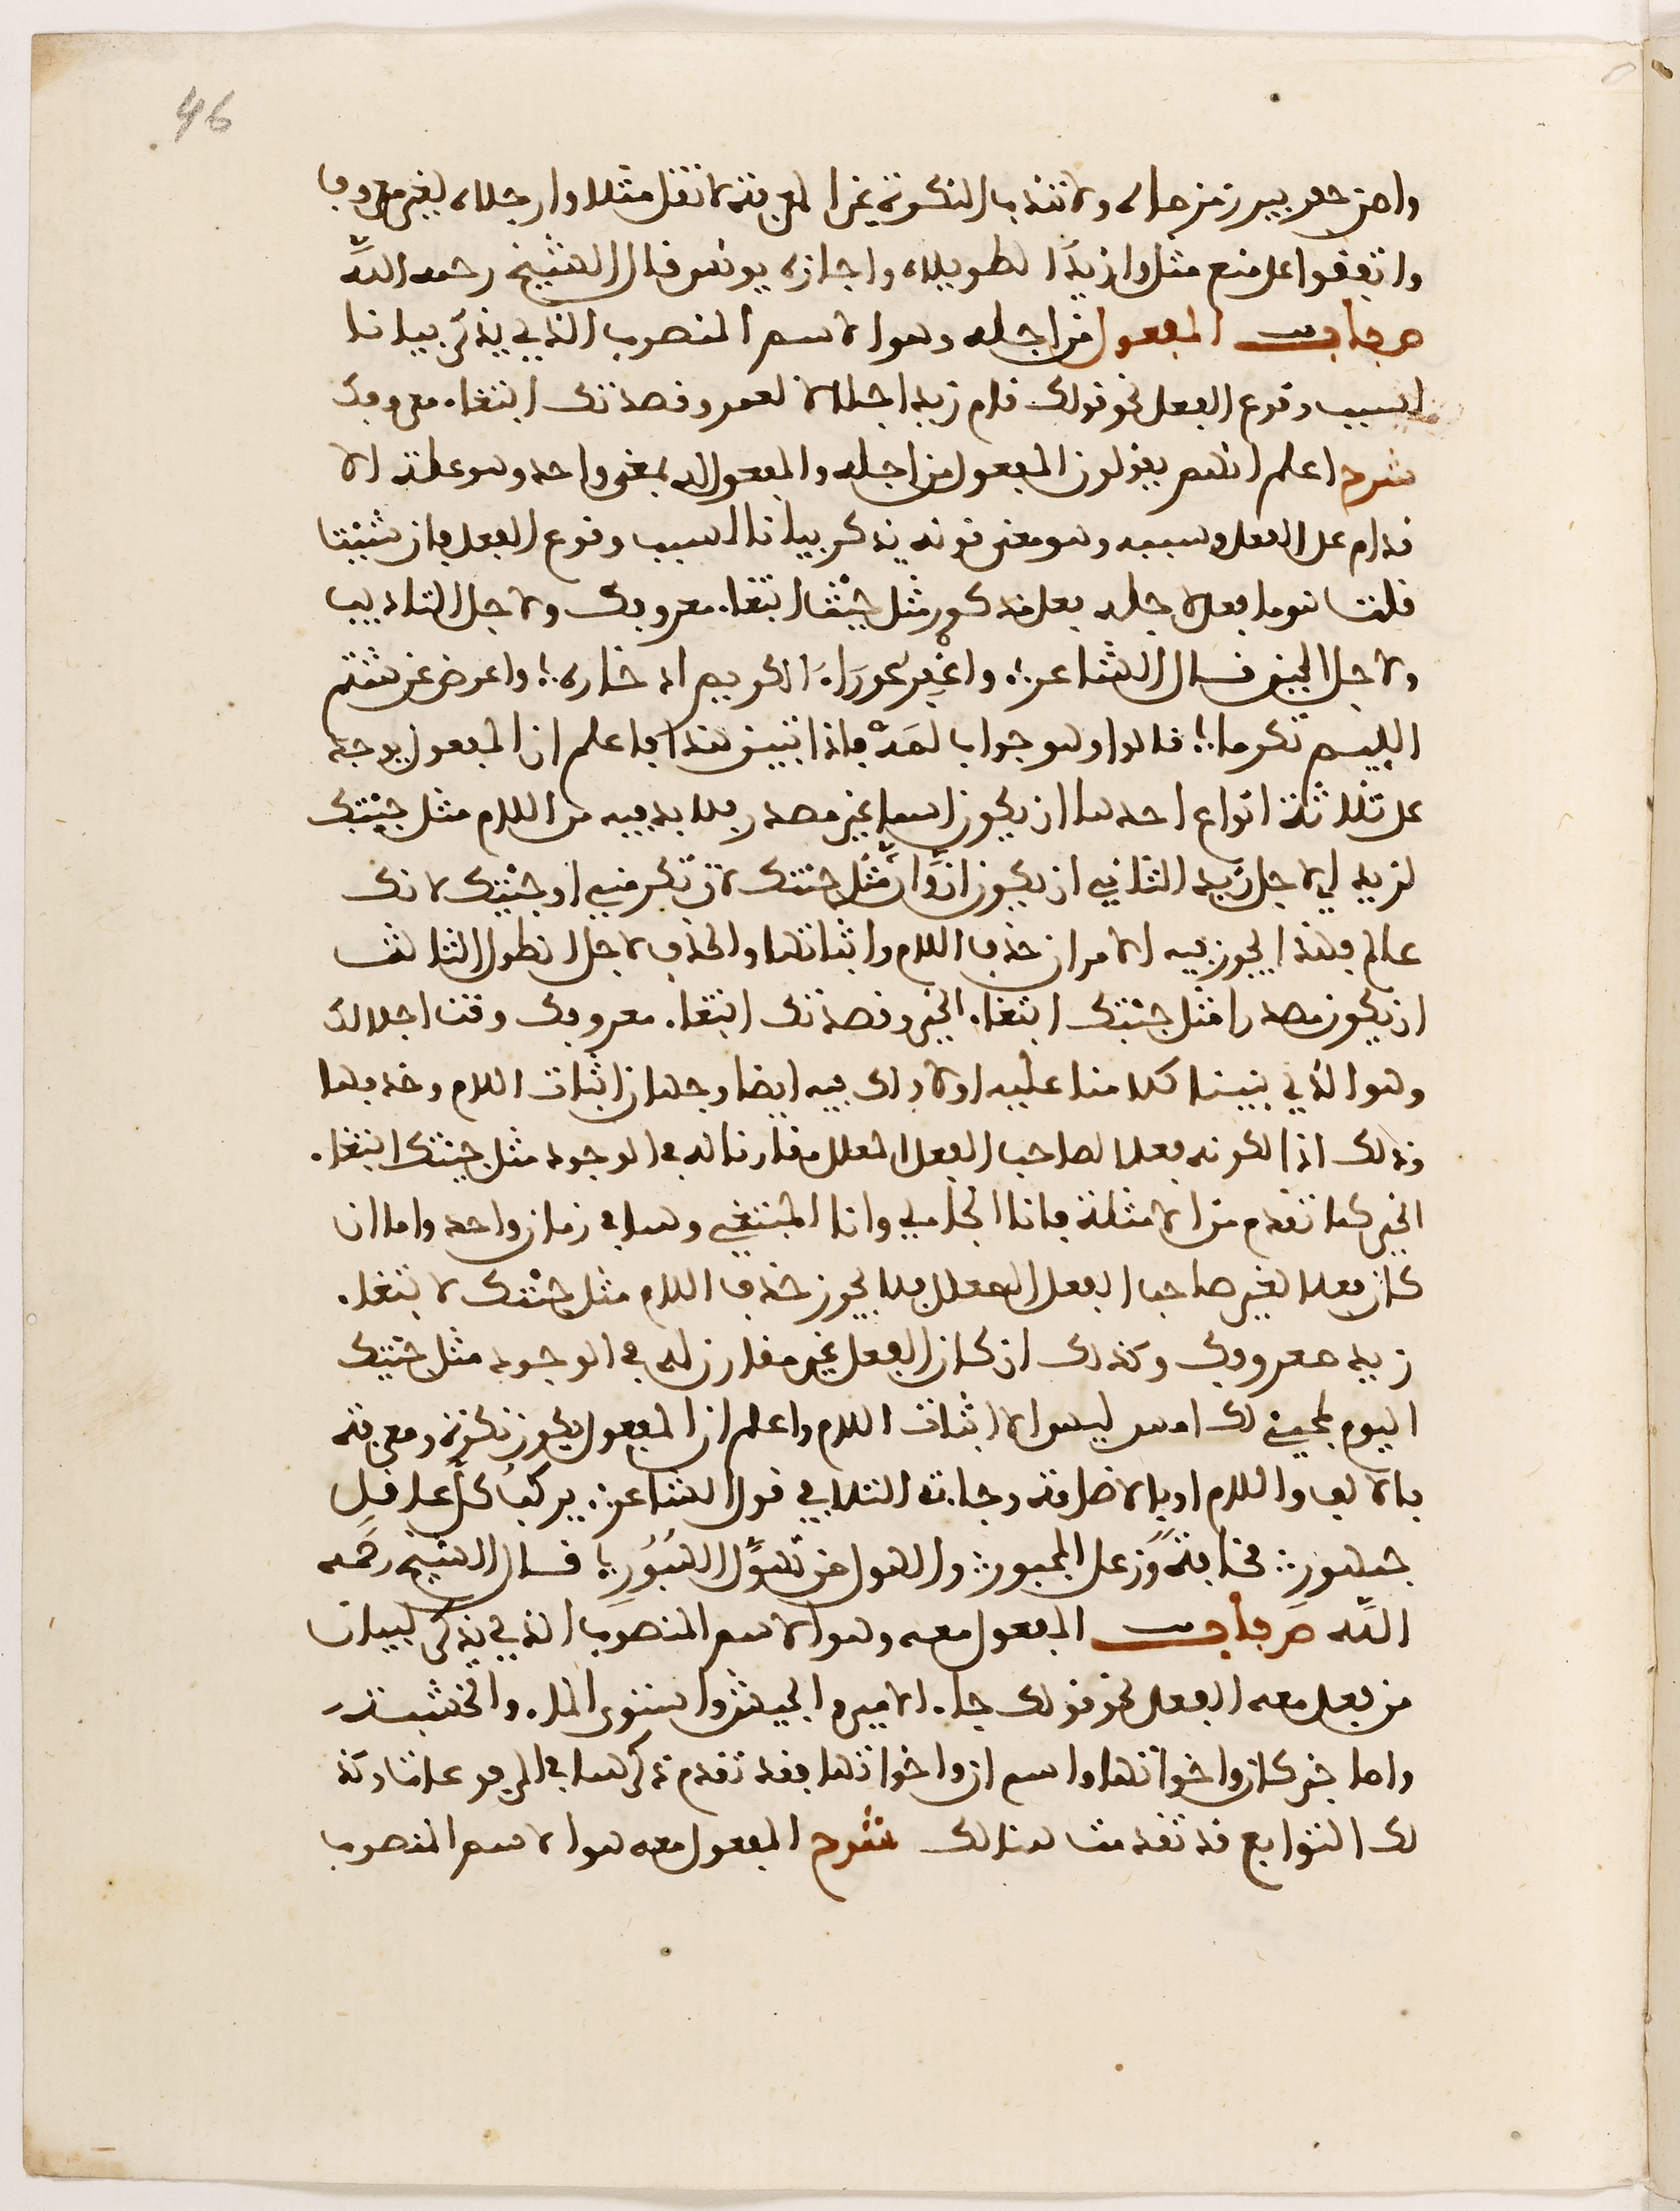 46
وامن حفر بير زمزماه ولا تندب النكرة غير المعرفة لا تقل مثلا وارجلاه لغير معروف
واتفقوا على منع مثل وازيدا الطويلاه واجازه يونس قال الشيخ رحمه الله
ص باب المفعول من اجله وهو الاسم المنصوب الذي يذكر بيانا
لسبب وقوع الفعل نحو قولك قام زيد اجلالا لعمرو قصدتك ابتغاء معروفك
شرح اعلم انهم يقولون المفعول من اجله والمفعول له بمعنى واحد وهو علة الا
قدام على الفعل وسببه وهو معنى قوله يذكر بيانا لسبب وقوع الفعل فان شئت
قلت هو ما فعل لاجله فعل مذكور مثل جئت ابتغاء معروفك ولاجل التاديب
ولاجل الجبن قال الشاعر واغفر عوراء الكريم ادخاره واعرض عن شتم
الليم تكرما قالوا وهو جواب لمه فاذا تبين هذا فاعلم ان المفعول يوجد
على ثلاثة انواع احدها ان يكون اسما غير مصدر فلا بد فيه من اللام مثل جئتك
لزيد اي لاجل زيد الثاني ان يكون ان وأن مثل جئتك لان تكرمني او جئتك لانك
عالم فهذا يجوز فيه الامران حذف اللام واثباتها والحذف لاجل الطول الثالث
ان يكون مصدرا مثل جئتك ابتغاء الخير وقصدتك ابتغاء معروفك وقمت اجلالك
وهو الذي بنينا كلامنا عليه اولا ولك فيه ايضا وجهان اثبات اللام وحذفها
وذلك اذا لكونه فعلا لصاحب الفعل المعلل مقارنا له في الوجود مثل جئتك ابتغاء
الخير كما تقدم من الامثلة فانا الجاءي وانا المبتغي وهما في زمان واحد واما ان
كان فعلا لغير صاحب الفعل المعلل فلا يجوز حذف اللام مثل جئتك لابتغاء
زيد معروفك وكذلك ان كان الفعل غير مقارن له في الوجود مثل جئتك
اليوم لمجيئي لك امس ليس الا اثبات اللام واعلم ان المفعول يكون نكرة ومعرفة
بالالف واللام او بالاضافة وجاءت الثلاث في قول الشاعر يركب كل عاقل
جمهور مخافة وزعل المحبور والهول من تهول الهبور قال الشيخ رحمه
الله ص باب المفعول معه وهو الاسم المنصوب الذي يذكر لبيان
من فعل معه الفعل نحو قولك جاء الامير والجيش واستوى الماء والخشبة
واما خبر كان واخواتها واسم ان واخواتها فقد تقدم ذكرهما في المرفوعات وكذ
لك التوابع قد تقدمت هنالك شرح المفعول معه هو الاسم المنصوب